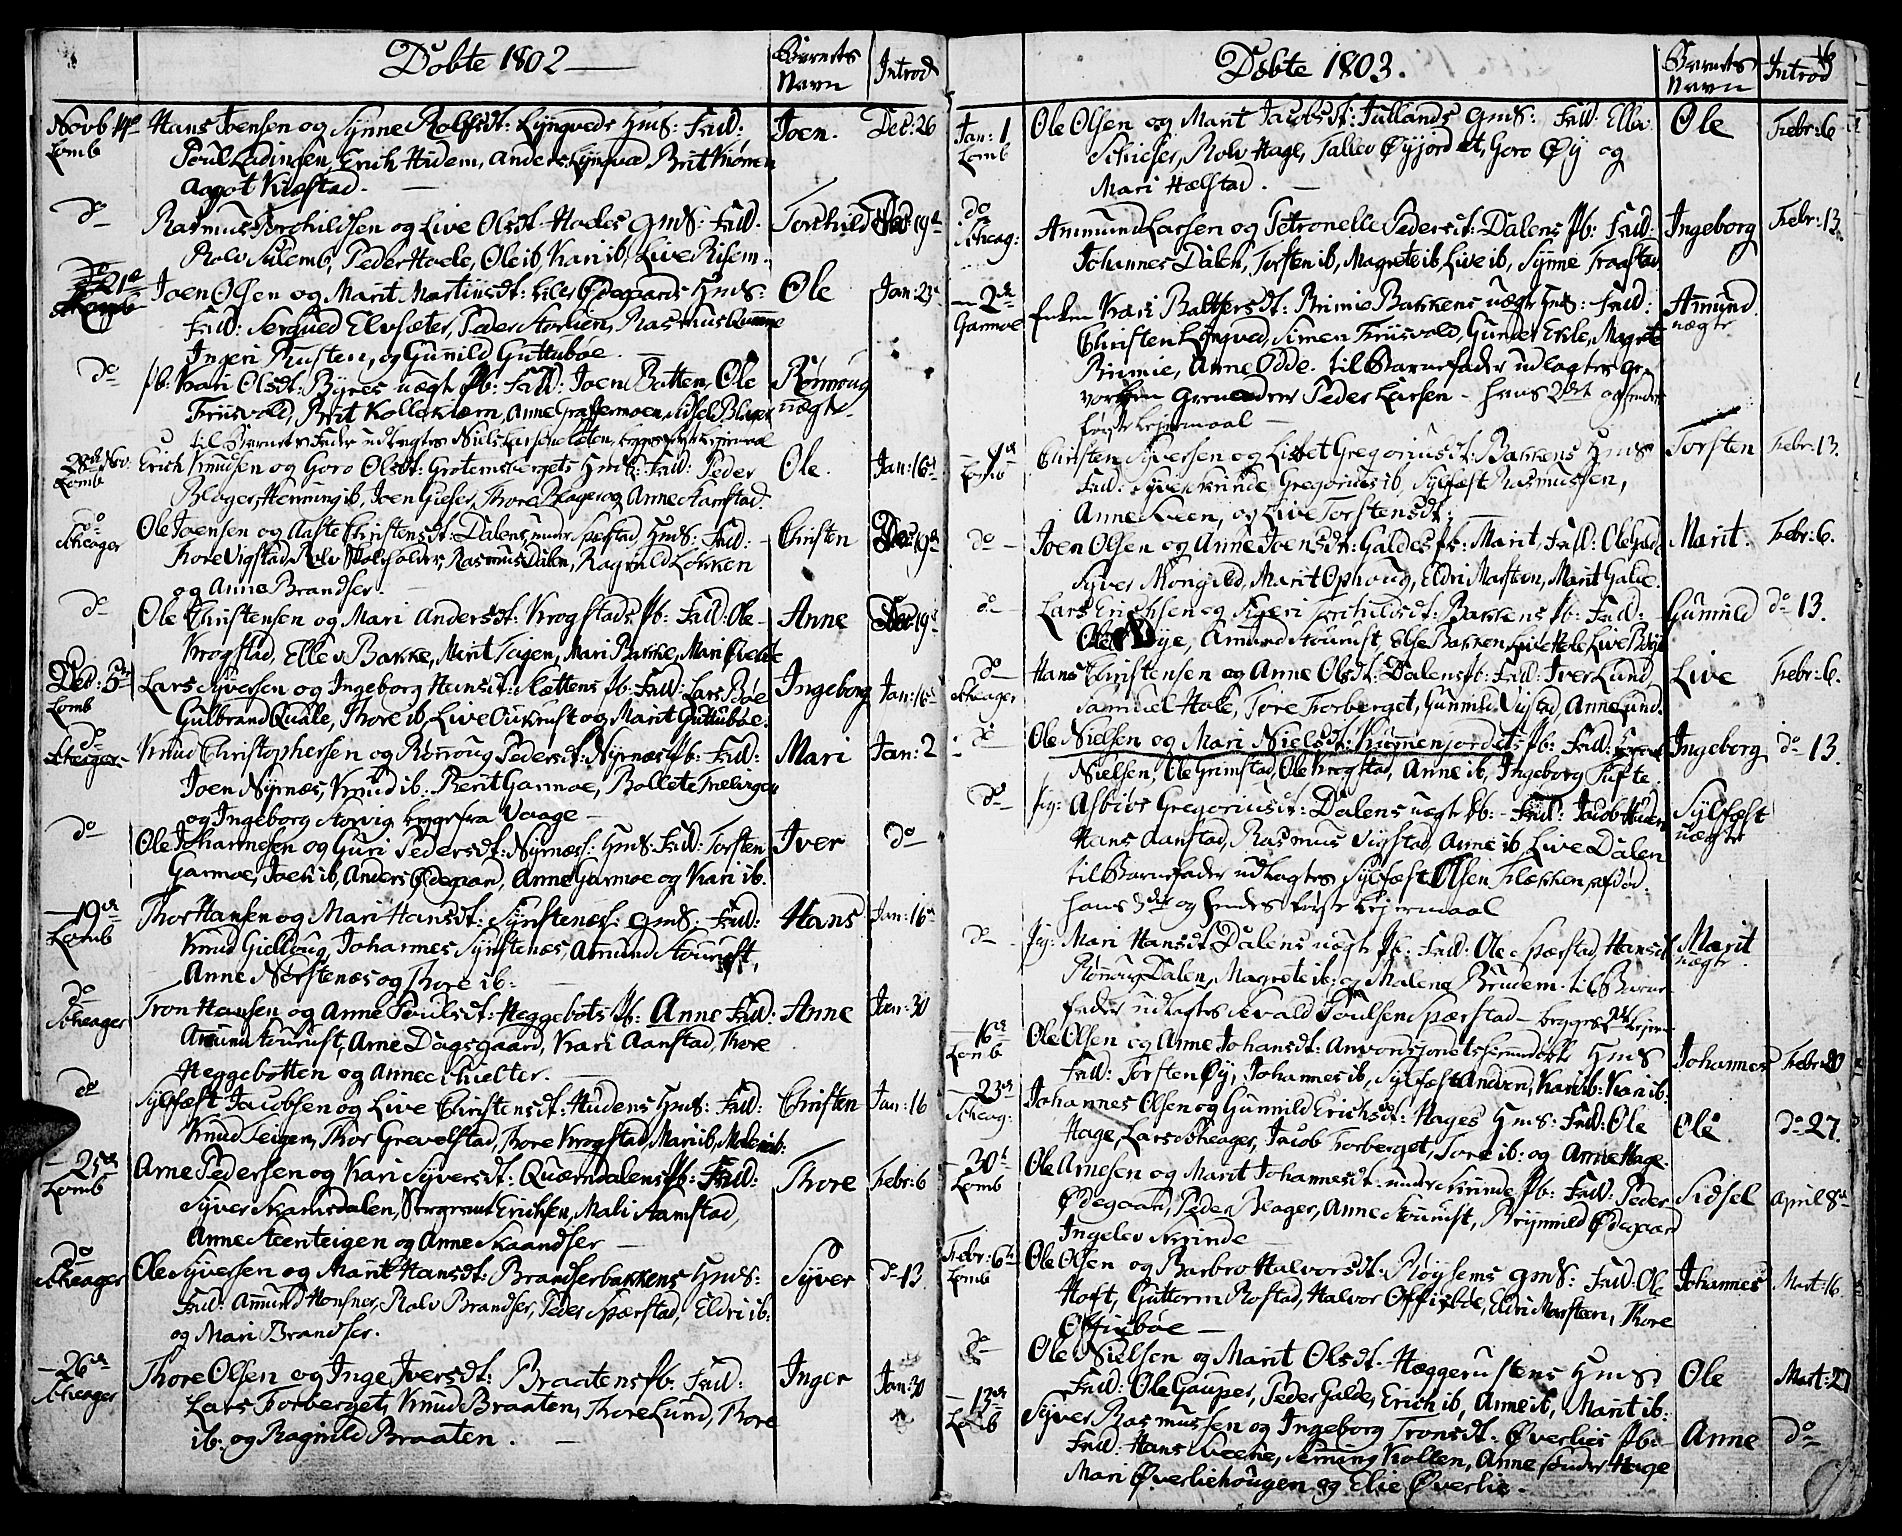 Døbte 1802
Barnets Navn
Introd
Novb 14de Lomb
Hans Joensen og Synne Rolfsdt: Lyngveds Hms: Fad:
Poul Ladingsen, Erich Hidem, Anders Lyngved, Brit
Aagot
Joen.
Dec: 26
do
Rasmus Torchildsen og Live Olsdt. Hoeles Gms: Fad:
Rolv Sulemb, Peder Hoele, Ole ib, Kari ib, Live Risem.
Torchild
19de
do 21de
Joen Olsen og Marit Martinsdt: Ødegaards Hms:
Fad: Elvsæter, Peder Storlien, Rasmus
Ingeri Rusten, og Gunild Guttuboe.
Ole
Jan: 23
do
Kari Olsdt: Byres uægte Pb: Fad: Joen Botten, Ole
Friisvold, Brit Anne
til Barnets Fader udlagtes Niels Larsen
Rønnoug uægte
28de Nov. Lomb
Erich Knudsen og Goro Olsdt: Grotemsbergets Hms: Fad: Peder
Blager, Henning ib, Joen Thore Blager og Anne Aanstad.
Ole.
Jan: 16de
do Scheager
Ole Joensen og Aaste Christensdt: Dalens under Spørstad, Hms: Fad:
Thore Vigstad, Rolv Skoleholder, Rasmus Dalen, Ragnild Løkken
og Anne Brandser.
Christen
Dec 19de
do
Ole Christensen og Mari Andersdt: Krogstads Pb: Fad: Ole
Krogstad, Ellev Bakke, Marit Teigen, Mari Bakke, Mari
Anne
Dec 19de
Dec: 5te Lomb
Lars Syversen og Ingeborg Hansdt: Slettens Pb: Fad: Lars Bøe
Gulbrand Quale, Thore ib, Live Aukrust og Marit Guttuboe.
Ingeborg
Jan: 16de
do Scheager
Knud Christophersen og Rønnoug Pedersdt: Nyrnæs Pb: Fad:
Joen Nyrnæs, Knud ib: Berit Garmoe, Bollete
og Ingeborg Storvig begge fra Vaage
Mari
Jan: 2
do
Ole Johannesen og Guri Pedersdt: Nyrnæs: Hms: Fad: Torsten
Garmoe, Joen ib, Anders Ødegaard, Anne Garmoe og Kari ib.
Iver
do
19de Lomb
Thor Hansen og Mari Hansdt: Synstenæs: Gms: Fad:
Knud Gielloug, Johannes Synstenæs, Amund Aukrust,
Anne Norstenæs og Thore ib:
Hans
Jan: 16de
do Scheager
Tron Hansen og Anne Poulsdt: Heggebots Pb: Anne Fad:
Amund Aukrust, Arne Dagsgaard, Kari Aanstad, Thore
Heggebotten og Anne Schielter.
Anne
Jan: 30
do
Sylfæst Jacobsen og Live Christensdt: Hudens Hms: Fad:
Knud Teigen, Thor Grevelstad, Thore Krogstad, Mari ib, Malen ib:
Christen
Jan: 16
25de Lomb
Arne Pedersen og Kari Syversdt: Quærndalens Pb: Fad:
Syver Skamsdalen, Erichsen, Mali Aamstad,
Anne Steenteigen og Anne Skaandser
Thore
Febr: 6
do Scheager
Ole Syversen og Marit Hansdt: Brandserbakkens Hms:
Fad: Amund Honsner, Rolv Brandser, Peder Spørstad, Eldri ib:
og Mari Brandser.
Syver
do 13.
26de Scheager
Thore Olsen og Inge Iversdt: Braatens Pb: Fad:
Lars Forberget, Knud Braaten, Thore Lund, Thore
ib: og Ragnild Braaten.
Inger
Jan: 30
Døbte 1803.
Barnets Navn
Introd
16
Jan: 1 Lomb
Ole Olsen og Marit Jacobsdt: Jullands Gms: Fad: Ellev
Rolv Hage, Tallev Øyjordet, Goro Øy og
Mari Hælstad.
Ole
Febr: 6
do Scheag:
Ammund Larsen og Petronelle Pedersdt: Dalens Pb: Fad:
Johannes Dalen, Torsten ib, Magrete ib, Live ib, Synne Traastad
Ingeborg
Febr: 13.
2de Garmoe
Enken Kari Baltsersdt: Brimie Bakkens uægte Hms: Fad:
Christen Lyngved, Simen Friisvold, Gunder Magrete
Brimie, Anne Odde. til Barnefader udlagtes
Grenader Peder Larsen - hans 2det og hendes
første Lejermaal -
Amund uægte
Lomb
Christen Syversen og Lisbet Gregoriusdt: Bakkens Hms:
Fad: Syver Skrinde, Gregorius ib, Sylfæst Rasmussen,
Anne Sveen, og Live Torstensdt:
Torsten
Febr: 13.
do
Joen Olsen og Anne Joensdt: Galdes Pb: Marit, Fad: Ole Galde
Syver Marit Ophoug, Eldri Marsteen, Marit Galde.
Marit.
Febr: 6.
do
Lars Erichsen og Sigeri Torchildsdt: Bakkens Pb: Fad:
Ole Bye, Amund Aukrust, Else Bakken, Live Hole, Live
Gunnild
do 13.
do Scheager
Hans Christensen og Anne Olsdt: Dalens Pb: Fad: Iver Lund,
Samuel Hole, Tore Forberget, Gunnild Vigstad, Anne Lund.
Live
Febr: 6.
do
Ole Nielsen og Mari Nielsdt: Kummenjordets Pb: Fad:
Nielsen, Ole Grimstad, Ole Krogstad, Anne ib, Ingeborg Tufte
Ingeborg
do 13.
do
Pig: Asbiør Gregoriusdt: Dalens uægte Pb: Fad: Jacob
Hans Aanstad, Rasmus Vigstad, Anne ib, Live Dalen
til Barnefader udlagtes Sylfæst Olsen Flækken, afdød:
hans 3die og hendes første Lejermaal
Sylfæst uægte
do
Pig: Mari Hansdt Dalens uægte Pb: Fad: Ole Spørstad, Hans ib
Rønnoug Dalen, Magrete ib: og Malene Brudem. til Barne-
fader udlagtes Evald Poulsen Spørstad begges
Marit uægte
16de Lomb
Ole Olsen og Anne Johansdt: Hms
Fad: Torsten Øy, Johannes ib, Sylfæst Andvord, Kari ib: Kari ib.
Johannes
Febr: 20
23de Scheag:
Johannes Olsen og Gunnild Erichsdt: Hages Hms: Fad: Ole
Hage, Lars Scheager, Jacob Forberget, Tore ib: og Anne Hage.
Ole
do 27.
30te Lomb
Ole Arnesen og Marit Johannesdt: under Skrinde Pb: Fad: Peder
Ødegaard, Peder Blager, Anne Aukrust, Brynnild Ødegaard
Ingelev Skrinde
Sidsel
April 8de
Febr: 6te Lomb
Ole Olsen og Barbro Halvorsdt: Røysems Gms: Fad: Ole
Hoft, Guttorm Rostad, Halvor Offigsbøe, Eldri Marsteen, Thore
Offigsbøe
Johannes
Mart: 16
do
Ole Nielsen og Marit Olsdt: Hæggerustens Hms:
Fad: Ole Gaupar, Peder Galde, Erich ib, Anne ib, Marit ib:
Ole
Mart: 27
13de Lomb
Syver Rasmussen og Ingeborg Tronsdt: Øverlies Pb:
Fad: Hans Sveene, Kollen, Anne Sønder Hage
Mari Øverliehougen og Elie Øverlie.
Anne
do